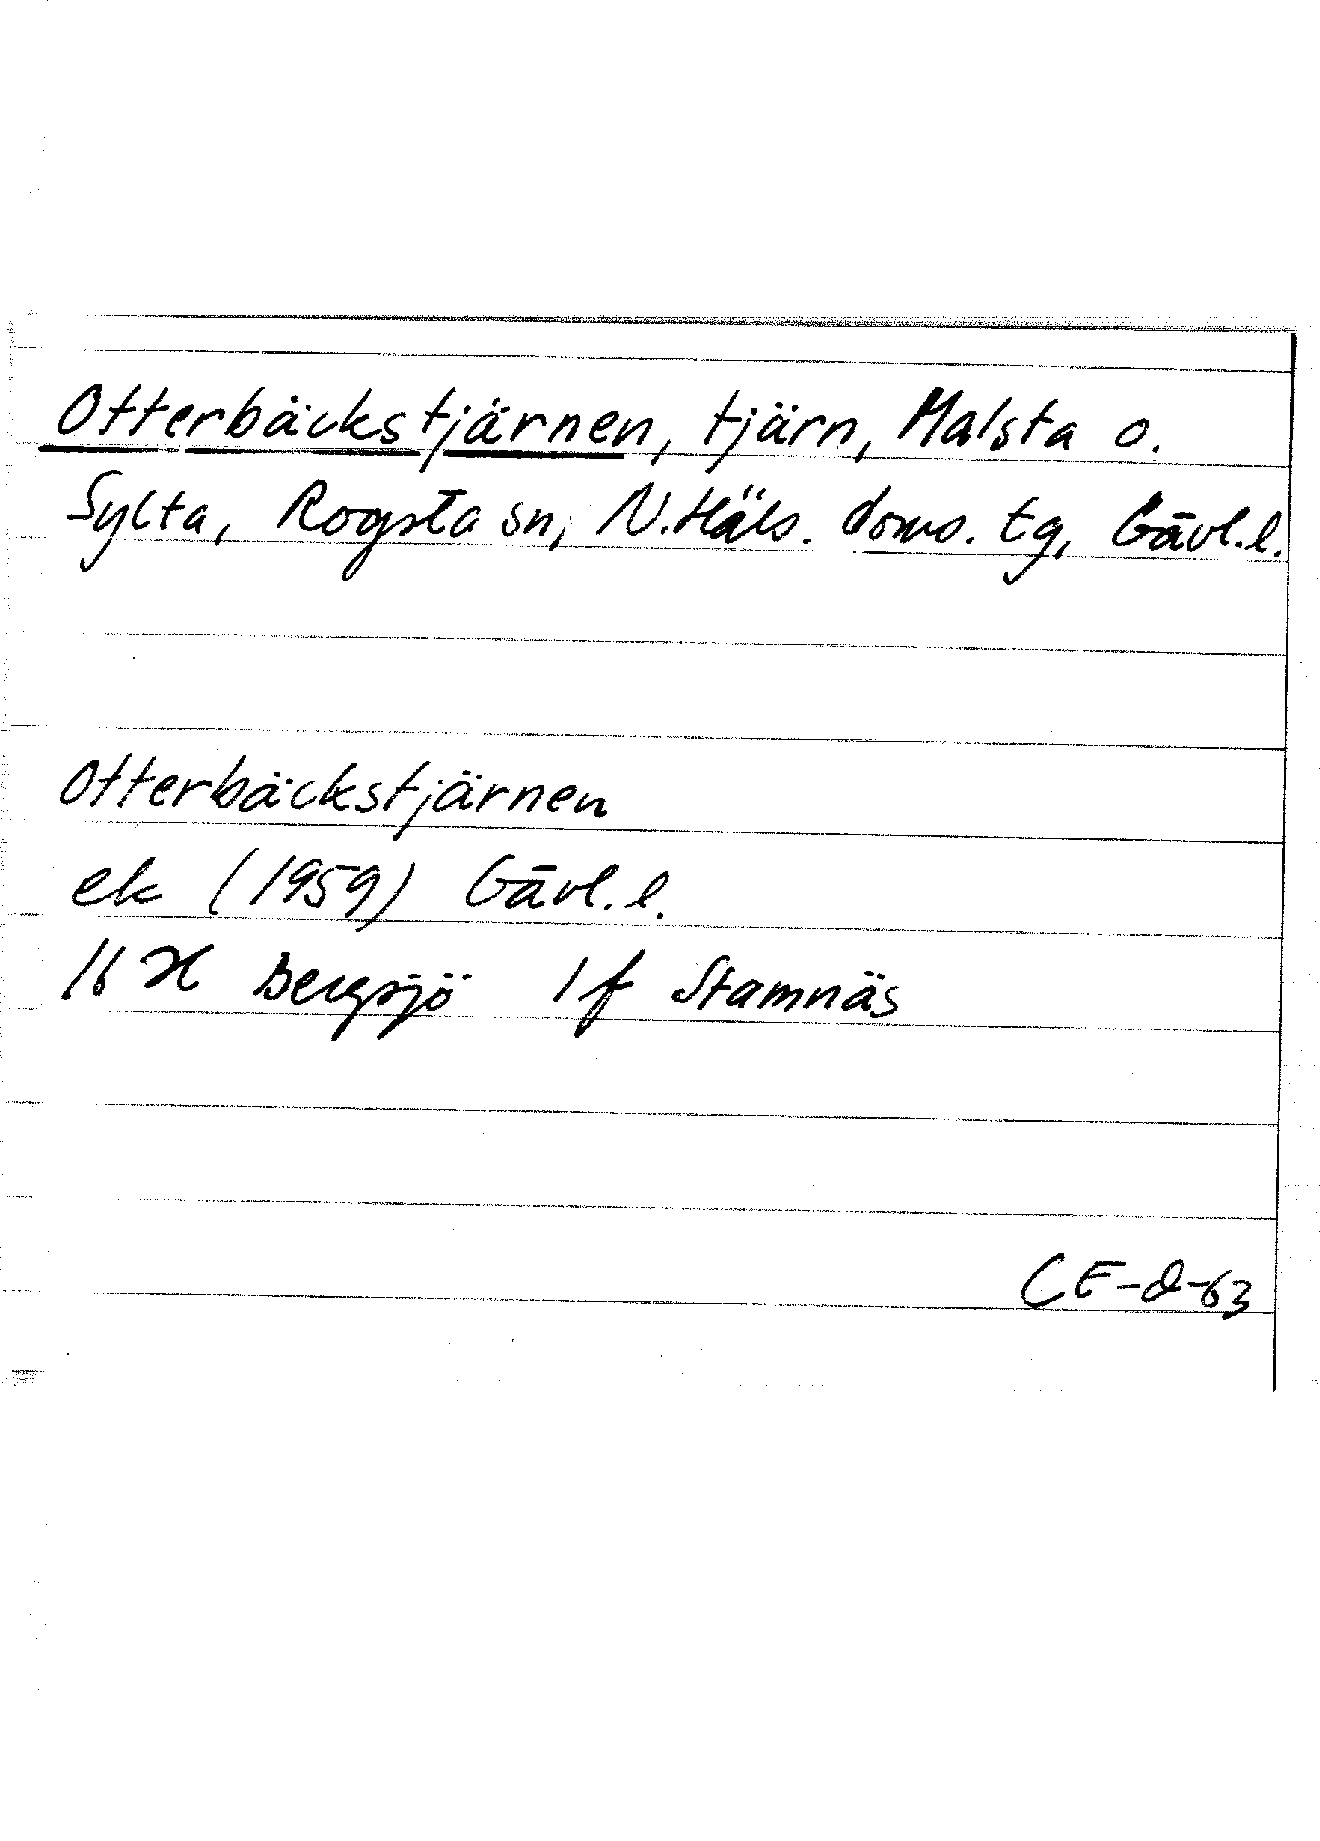 Otterbäckstjärnen, tjärn, Malsta o.
Sylta, Rogsta sn, N. Häls. doms. tg, Gävl. l.
Otterbäckstjärnen
ek (1959) Gävl. l.
16 H Bergsjö 1 f Stamnäs
CE-d-63